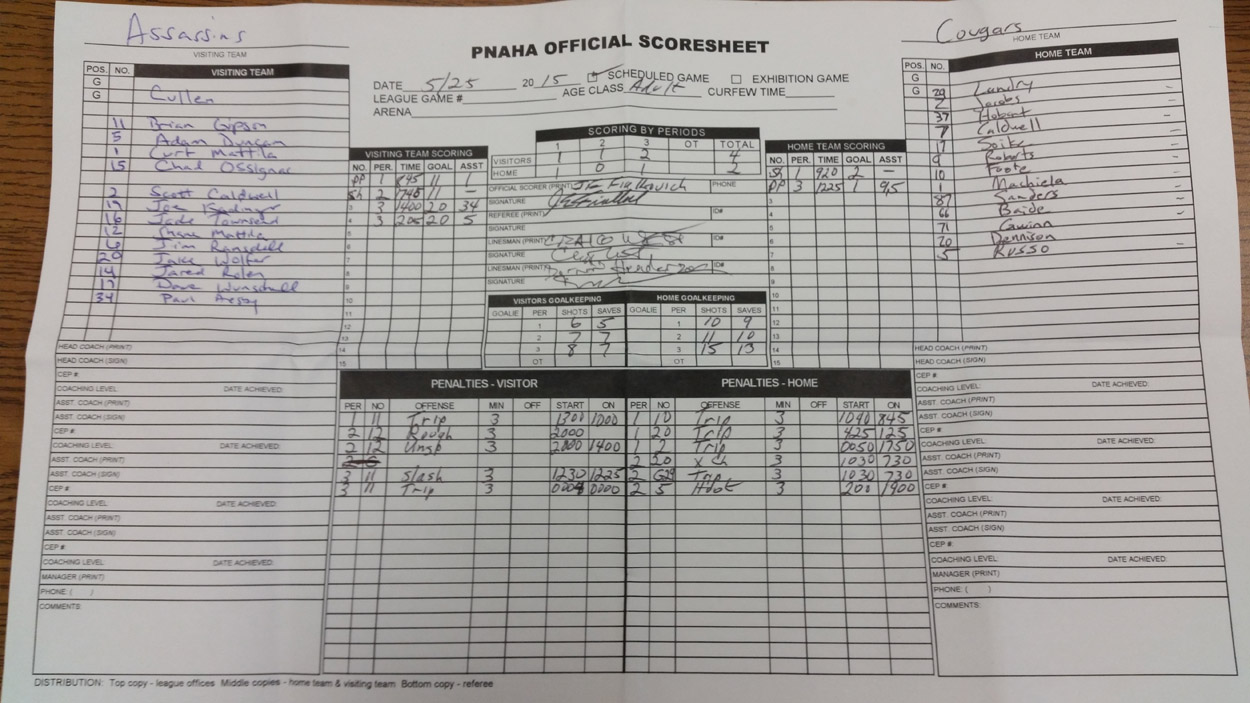 Assassins
VISITING TEAM
Cougars
HOME TEAM
PNAHA OFFICIAL SCORESHEET
DATE 5/25 20 15 SCHEDULED GAME EXHIBITION GAME
LEAGUE GAME # AGE CLASS Adult CURFEW TIME
ARENA
POS. NO. VISITING TEAM
G
G Cullen
11 Brian Gipson
5 Adam Duncan
1 Curt Mattila
15 Chad Ossignac
2 Scott Caldwell
Joe
16 Jade Townsend
12 Shane Mattila
6 Jim Ransdell
20 Jake Wolfer
14 Jared Rolen
17 Dave Wunschell
34 Paul
POS. NO. HOME TEAM
G
G 29 Landry
2 Jacobs
37 Hobart
7 Caldwell
17 Spitz
9 Roberts
10 Foote
1 Mashiela
87 Sanders
66 Baide
71
20 Dennison
5 Russo
SCORING BY PERIODS
1 2 3 OT TOTAL
VISITORS 1 1 2 4
HOME 1 0 1 2
VISITING TEAM SCORING
NO. PER. TIME GOAL ASST
PP 1 845 11 1
Sh 2 740 11 —
3 3 1400 20 34
4 3 205 20 5
5
6
7
8
9
10
11
12
13
14
15
OFFICIAL SCORER (PRINT) PHONE
SIGNATURE
REFEREE (PRINT) ID#
SIGNATURE
LINESMAN (PRINT) CRAIG WEST ID#
SIGNATURE
LINESMAN (PRINT) Henderson ID#
SIGNATURE
HOME TEAM SCORING
NO. PER. TIME GOAL ASST
Sh 1 920 2 —
PP 3 1225 1 9,5
3
4
5
6
7
8
9
10
11
12
13
14
15
VISITORS GOALKEEPING
GOALIE PER SHOTS SAVES
1 6 5
2 7 7
3 8 7
OT
HOME GOALKEEPING
GOALIE PER SHOTS SAVES
1 10 9
2 11 10
3 15 13
OT
PENALTIES - VISITOR
PER NO OFFENSE MIN OFF START ON
1 11 Trip 3 1300 1000
2 12 Rough 3 2000
2 12 Unsp 3 2000 1400
3 11 Slash 3 1230 1225
3 11 Trip 3 0004 0000
PENALTIES - HOME
PER NO OFFENSE MIN OFF START ON
1 10 Trip 3 1040 845
1 20 Trip 3 425 125
1 2 Trip 3 0050 1750
2 20 x Ch 3 1030 730
2 G29 Trip 3 1030 730
2 5 Hook 3 200 1900
HEAD COACH (PRINT)
HEAD COACH (SIGN)
CEP #:
COACHING LEVEL: DATE ACHIEVED:
ASST. COACH (PRINT)
ASST. COACH (SIGN)
CEP #:
COACHING LEVEL: DATE ACHIEVED:
ASST. COACH (PRINT)
ASST. COACH (SIGN)
CEP #:
COACHING LEVEL: DATE ACHIEVED:
ASST. COACH (PRINT)
ASST. COACH (SIGN)
CEP #:
COACHING LEVEL: DATE ACHIEVED:
MANAGER (PRINT)
PHONE: ( )
COMMENTS:
HEAD COACH (PRINT)
HEAD COACH (SIGN)
CEP #:
COACHING LEVEL: DATE ACHIEVED:
ASST. COACH (PRINT)
ASST. COACH (SIGN)
CEP #:
COACHING LEVEL: DATE ACHIEVED:
ASST. COACH (PRINT)
ASST. COACH (SIGN)
CEP #:
COACHING LEVEL: DATE ACHIEVED:
ASST. COACH (PRINT)
ASST. COACH (SIGN)
CEP #:
COACHING LEVEL: DATE ACHIEVED:
MANAGER (PRINT)
PHONE: ( )
COMMENTS:
DISTRIBUTION: Top copy - league offices Middle copies - home team & visiting team Bottom copy - referee